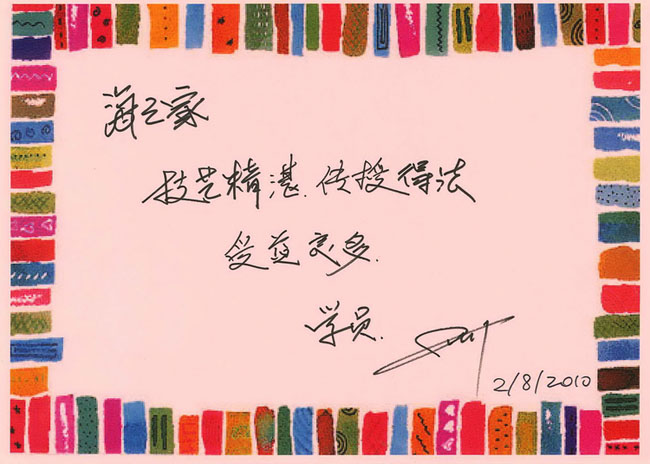 之家
技艺精湛.传授得法
受益 多.
学员.
2/8/2010